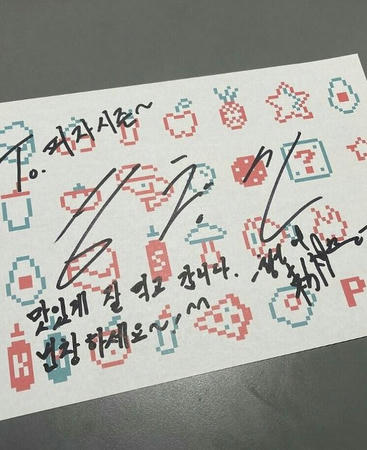 To. 피자시즌~
?
맛있게 잘 먹고 갑니다.
번창 하세요~, ^^
P